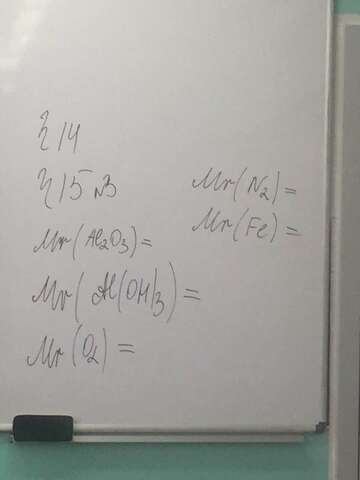 §14
§15 №3
Mr(Al₂O₃)=
Mr(Al(OH)₃)=
Mr(O₂)=
Mr(N₂)=
Mr(Fe)=